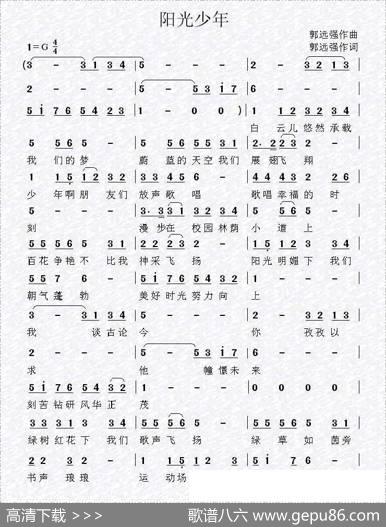 阳光少年
郭远强作曲
1=G 4/4
郭远强作词
(3 - 31 34 5 - - - 2 - 32 13
2 - - - 5 - 53 i7 6 - - -
5i 76 54 23 1 - 0 0 ) 1 12 32 34
白 云儿 悠然 承载
5 56 5 - 56 55 31 5 2·2 23 2 -
我 们的 梦 蔚 蓝的 天空 我们 展 翅飞 翔
1 15 12 32 34 32 1 - 44 43 2 26
少 年啊 朋 友们 放声 歌 唱 歌唱 幸福 的 时
5 - - - 3·3 31 32 34 5 56 5 -
刻 漫 步在 校园 林荫 小 道 上
55 56 5 31 34 32 1 - 15 12 3 34
百花 争艳 不 比我 神采 飞 扬 阳光 明媚 下 我们
55 7 6 - 5i 76 54 32 1 - - -
朝气 蓬 勃 美好 时光 努力 向 上
3 - 31 34 5 - - - 2 - 32 13
我 谈古 论 今 你 孜孜 以
2 - - - 5 - 53 i7 6 - - -
求 他 憧憬 未 来
5i 76 54 32 1 - - - 0 0 0 0
刻苦 钻研 风华 正 茂
33 31 3 34 55 56 5 - 5 4 3 34
绿树 红花 下 我们 歌声 飞 扬 绿 草 如 茵旁
22 32 3 - 1 15 12 3 5i 76 - -
书声 琅 琅 运 动场
高清下载 >>>
歌谱八六 www.gepu86.com